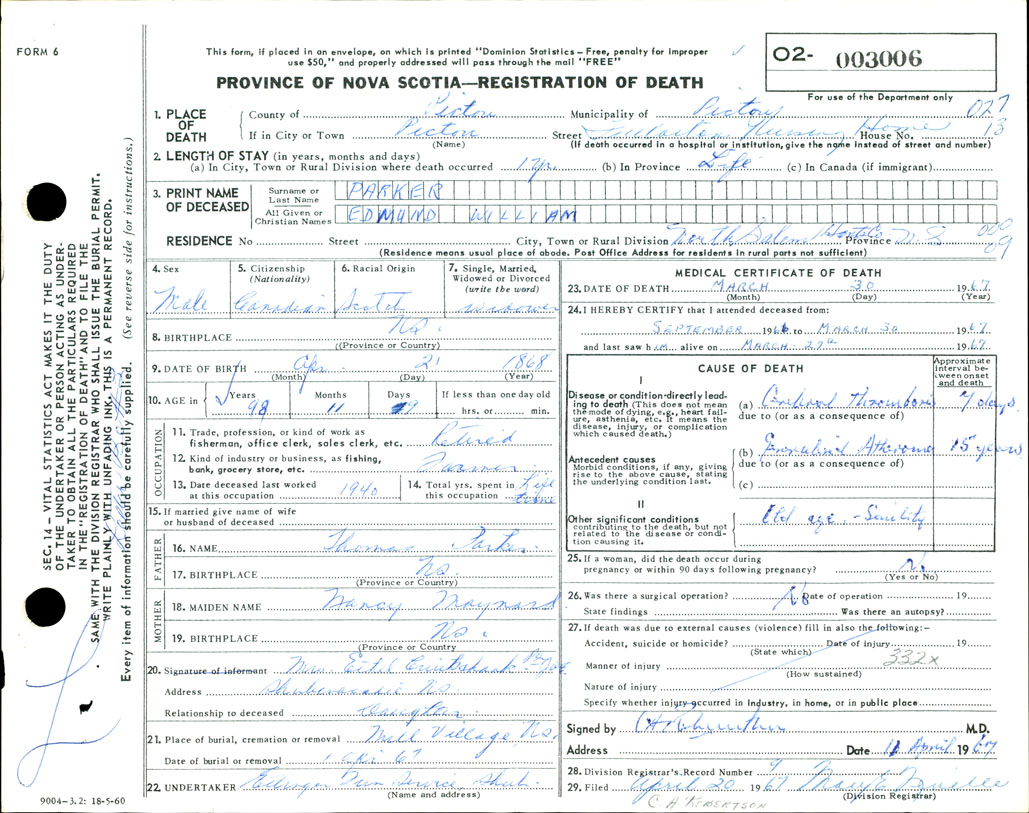 FORM 6
This form, if placed in an envelope, on which is printed "Dominion Statistics – Free, penalty for improper
use $50," and properly addressed will pass through the mail "FREE"
O2- 003006
PROVINCE OF NOVA SCOTIA—REGISTRATION OF DEATH
For use of the Department only
1. PLACE OF DEATH
County of Pictou Municipality of Pictou 027
If in City or Town Pictou Street Nursing Home House No. 13
(Name) (If death occurred in a hospital or institution, give the name instead of street and number)
2. LENGTH OF STAY (in years, months and days)
(a) In City, Town or Rural Division where death occurred 1 yr. (b) In Province Life (c) In Canada (if immigrant)
3. PRINT NAME OF DECEASED
Surname or Last Name PARKER
All Given or Christian Names EDMUND WILLIAM
RESIDENCE No Street City, Town or Rural Division North Salem Hants Co. Province N.S. 09
(Residence means usual place of abode. Post Office Address for residents in rural parts not sufficient)
4. Sex Male
5. Citizenship (Nationality) Canadian
6. Racial Origin Scotch
7. Single, Married, Widowed or Divorced (write the word) Widower
8. BIRTHPLACE N.S.
((Province or Country)
9. DATE OF BIRTH Apr. 21 1868
(Month) (Day) (Year)
10. AGE in Years 98 Months 11 Days 9 If less than one day old
hrs. or min.
OCCUPATION
11. Trade, profession, or kind of work as
fisherman, office clerk, sales clerk, etc. Retired
12. Kind of industry or business, as fishing,
bank, grocery store, etc. Farmer
13. Date deceased last worked
at this occupation 1940
14. Total yrs. spent in
this occupation Life
15. If married give name of wife
or husband of deceased
FATHER
16. NAME Thomas Parker
17. BIRTHPLACE N.S.
(Province or Country)
MOTHER
18. MAIDEN NAME Nancy Maynard
19. BIRTHPLACE N.S.
(Province or Country
20. Signature of informant Mrs.
Address Shubenacadie N.S.
Relationship to deceased Daughter
21. Place of burial, cremation or removal Mill Village, N.S.
Date of burial or removal 1 Apr 67
22. UNDERTAKER Ettinger Fun Service Shub.
(Name and address)
9004–3.2: 18-5-60
MEDICAL CERTIFICATE OF DEATH
23. DATE OF DEATH MARCH 30 1967
(Month) (Day) (Year)
24. I HEREBY CERTIFY that I attended deceased from:
SEPTEMBER 1966 to MARCH 30 1967
and last saw him alive on MARCH 27th 1967
CAUSE OF DEATH
Approximate interval between onset and death
I
Disease or condition-directly leading to death (This does not
mean the mode of dying, e.g., heart failure, asthenia, etc. It means the
disease, injury, or complication
which caused death.)
(a) Cerebral Thrombosis 7 days
due to (or as a consequence of)
Antecedent causes
Morbid conditions, if any, giving
rise to the above cause, stating
the underlying condition last.
(b) Atheroma 15 years
due to (or as a consequence of)
(c)
II
Other significant conditions
contributing to the death, but not
related to the disease or condition
causing it.
Old age - Senility
25. If a woman, did the death occur during
pregnancy or within 90 days following pregnancy?
(Yes or No)
26. Was there a surgical operation? No Date of operation 19
State findings Was there an autopsy?
27. If death was due to external causes (violence) fill in also the following:–
Accident, suicide or homicide? Date of injury 19
(State which)
332X
Manner of injury
(How sustained)
Nature of injury
Specify whether injury occurred in Industry, in home, or in public place
Signed by M.D.
Address Date 11 April 1967
28. Division Registrar's Record Number 9
29. Filed April 20 1967 Mary E.
(Division Registrar)
C A ROBERTSON
SEC. 14 – VITAL STATISTICS ACT MAKES IT THE DUTY
OF THE UNDERTAKER OR PERSON ACTING AS UNDER-
TAKER TO OBTAIN ALL THE PARTICULARS REQUIRED
IN THE "REGISTRATION OF DEATH" AND TO FILE THE
SAME WITH THE DIVISION REGISTRAR WHO SHALL ISSUE THE BURIAL PERMIT.
WRITE PLAINLY WITH UNFADING INK. THIS IS A PERMANENT RECORD.
Every item of information should be carefully supplied. (See reverse side for instructions.)